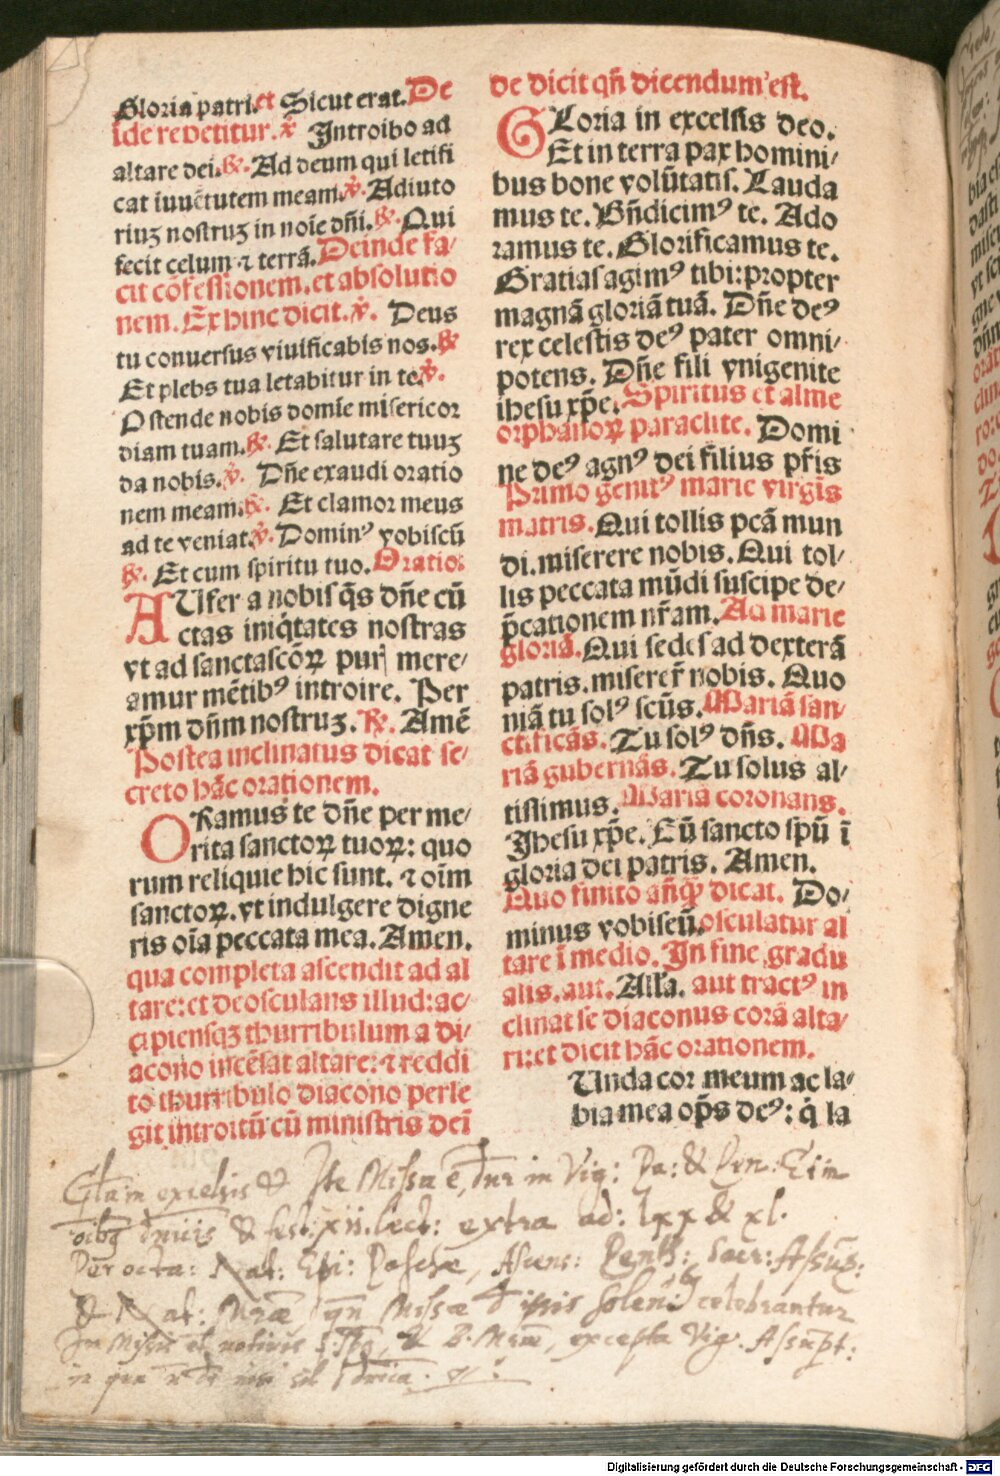 Gloria patri.et Sicut erat.De
ide repetitur. ℣ Introibo ad
altare dei.℟. Ad deum qui letifi
cat iuuētutem meam.℣. Adiuto
riuʒ nostruʒ in noīe dn̄i.℟. Qui
fecit celum ⁊ terrā. Deinde fa⸗
cit cōfessionem.et absolutio
nem. Ex hinc dicit.℣. Deus
tu conuersus viuificabis nos.℟
Et plebs tua letabitur in te.℣.
Ostende nobis domīe misericor
diam tuam.℟. Et salutare tuuʒ
da nobis.℣. Dn̄e exaudi oratio
nem meam.℟. Et clamor meus
ad te veniat.℣. Dominꝰ vobiscū
℟. Et cum spiritu tuo. Oratio:
AUfer a nobis q̄s dn̄e cū
ctas iniq̄tates nostras
vt ad sanctascōꝝ puri mere⸗
amur mētibꝰ introire. Per
xp̄m dn̄m nostruʒ. ℟. Amē
Postea inclinatus dicat se⸗
creto hāc orationem.
ORamus te dn̄e per me⸗
rita sanctoꝝ tuoꝝ: quo
rum reliquie hic sunt. ⁊ oīm
sanctoꝝ. vt indulgere digne
ris oīa peccata mea. Amen.
qua completa ascendit ad al
tare: et deosculans illud: ac⸗
cipiensqʒ thurribulum a di⸗
acono incēsat altare: ⁊ reddi
to thurribulo diacono perle
git introitū cū ministris deī
de dicit qn̄ dicendum est.
GLoria in excelsis deo.
Et in terra pax homini⸗
bus bone volūtatis. Lauda
mus te. Bn̄dicimꝰ te. Ado
ramus te. Glorificamus te.
Gratias agimꝰ tibi: propter
magnā gloriā tuā. Dn̄e deꝰ
rex celestis deꝰ pater omni⸗
potens. Dn̄e fili vnigenite
ihesu xp̄e. Spiritus et alme
orphanoꝝ paraclite. Domi
ne deꝰ agnꝰ dei filius pr̄is
Primo genitꝰ marie virgīs
matris. Qui tollis pcā mun
di. miserere nobis. Qui tol⸗
lis peccata mūdi suscipe de⸗
p̄cationem nr̄am. Ad marie
gloriā. Qui sedes ad dexterā
patris. miserer̄ nobis. Quo
niā tu solꝰ scūs. Mariā san⸗
ctificās. Tu solꝰ dn̄s. Ma
riā gubernās. Tu solus al⸗
tissimus. Mariā coronans.
Ihesu xp̄e. Cū sancto spū ī
gloria dei patris. Amen.
Quo finito añq̄ꝫ dicat. Do⸗
minus vobiscū. osculatur al
tare ī medio. In fine gradu
alis. aut. Alľa. aut tractꝰ in
clinat se diaconus corā alta⸗
ri: et dicit hāc orationem.
Unda cor meum ac la⸗
bia mea op̄s deꝰ: q̇ la
Gl̄a in excelsis & Ite Missa ē, d̄nr in Vig: Pa: & Pen: Et in
oībꝫ dn̄icis & fest. xii. lect: extra ad: lxx & xl.
Per octa: Nat: Epi: Pasche, Ascens: Penth: Sacr: Assūp:
& Nat: Mr̄æ, qn̄ Missæ d ipsis solenībꝫ celebrantur
In Missis et votivis & B. Mr̄æ, excepta Vig. Assūpt:
in qua